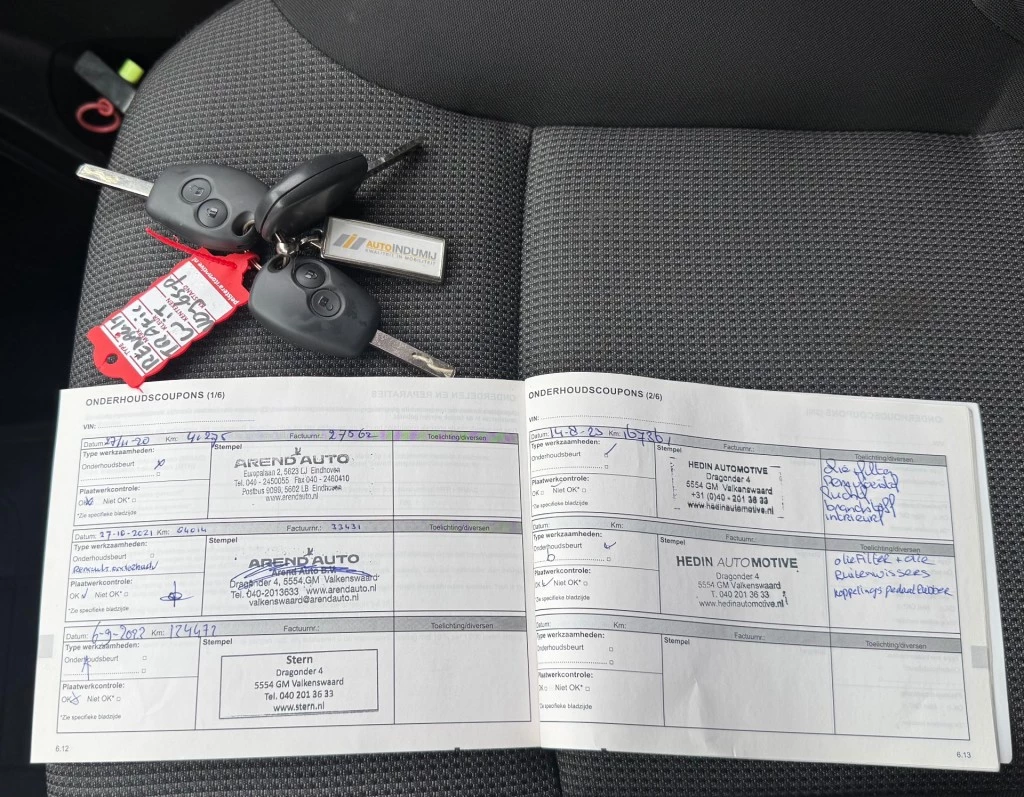 AUTOINDUMIJ
KWALITEIT IN MOBILITEIT
RENAULT
TRAFIC
WIT
ONDERHOUDSCOUPONS (1/6)
VIN:
Datum: 27/11-20 Km: 41275 Factuurnr.: 27562 Toelichting/diversen
Type werkzaamheden:
Stempel
Onderhoudsbeurt x
AREND AUTO
Europalaan 2, 5623 LJ Eindhoven
Tel. 040 - 2450055 Fax 040 - 2460410
Postbus 9099, 5602 LB Eindhoven
www.arendauto.nl
Plaatwerkcontrole:
OK Niet OK*
*Zie specifieke bladzijde
Datum: 27-10-2021 Km: 64014 Factuurnr.: 33431 Toelichting/diversen
Type werkzaamheden:
Stempel
Onderhoudsbeurt
AREND AUTO
Arend Auto B.V.
Dragonder 4, 5554 GM Valkenswaard
Tel. 040-2013633 www.arendauto.nl
valkenswaard@arendauto.nl
Plaatwerkcontrole:
OK Niet OK*
*Zie specifieke bladzijde
Datum: 6-9-2022 Km: 124472 Factuurnr.: Toelichting/diversen
Type werkzaamheden:
Stempel
Onderhoudsbeurt
Stern
Dragonder 4
5554 GM Valkenswaard
Tel. 040 201 36 33
www.stern.nl
Plaatwerkcontrole:
OK Niet OK*
*Zie specifieke bladzijde
6.12
ONDERHOUDSCOUPONS (2/6)
VIN:
Datum: 14-8-23 Km: 167361 Factuurnr.: Toelichting/diversen
Type werkzaamheden:
Stempel
Onderhoudsbeurt
HEDIN AUTOMOTIVE
Dragonder 4
5554 GM Valkenswaard
+31 (0)40 - 201 36 33
www.hedinautomotive.nl
Olie filter
lucht
brandstof
interieur
Plaatwerkcontrole:
OK Niet OK*
*Zie specifieke bladzijde
Datum: Km: Factuurnr.: Toelichting/diversen
Type werkzaamheden:
Stempel
Onderhoudsbeurt
HEDIN AUTOMOTIVE
Dragonder 4
5554 GM Valkenswaard
040 - 201 36 33
www.hedinautomotive.nl
olieFilter + olie
Ruitenwissers
koppelings pedaal Rubber
Plaatwerkcontrole:
OK Niet OK*
*Zie specifieke bladzijde
Datum: Km: Factuurnr.: Toelichting/diversen
Type werkzaamheden:
Stempel
Onderhoudsbeurt
Plaatwerkcontrole:
OK Niet OK*
*Zie specifieke bladzijde
6.13